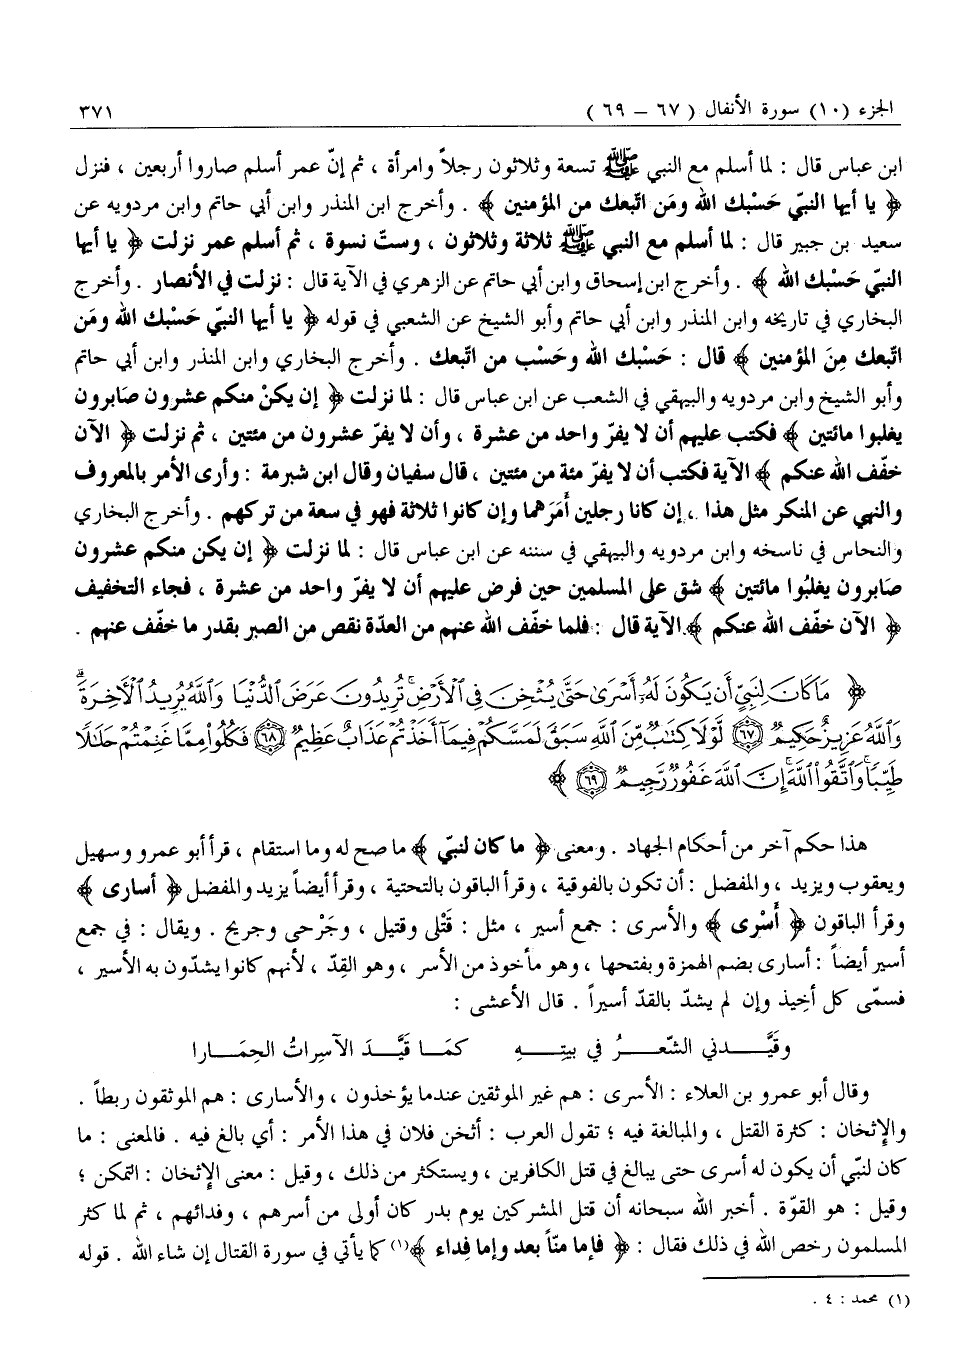 الجزء (١٠) سورة الأنفال ( ٦٧ – ٦٩ ) ٣٧١
ابن عباس قال : لما أسلم مع النبي ﷺ تسعة وثلاثون رجلاً وامرأة ، ثم إنّ عمر أسلم صاروا أربعين ، فنزل
﴿ يا أيها النبيّ حَسْبك الله ومَن اتّبعك من المؤمنين ﴾ . وأخرج ابن المنذر وابن أبي حاتم وابن مردويه عن
سعيد بن جبير قال : لما أسلم مع النبي ﷺ ثلاثة وثلاثون ، وستّ نسوة ، ثم أسلم عمر نزلت ﴿ يا أيها
النبيّ حَسْبك الله ﴾ . وأخرج ابن إسحاق وابن أبي حاتم عن الزهري في الآية قال : نزلت في الأنصار . وأخرج
البخاري في تاريخه وابن المنذر وابن أبي حاتم وأبو الشيخ عن الشعبي في قوله ﴿ يا أيها النبيّ حَسْبك الله ومَن
اتّبعك مِنَ المؤمنين ﴾ قال : حَسْبك الله وحَسْب من اتّبعك . وأخرج البخاري وابن المنذر وابن أبي حاتم
وأبو الشيخ وابن مردويه والبيهقي في الشعب عن ابن عباس قال : لما نزلت ﴿ إن يكنْ منكم عشرون صَابرون
يغلبوا مائتين ﴾ فكتب عليهم أن لا يفرّ واحد من عشرة ، وأن لا يفرّ عشرون من مئتين ، ثم نزلت ﴿ الآن
خفّف الله عنكم ﴾ الآية فكتب أن لا يفرّ مئة من مئتين ، قال سفيان وقال ابن شبرمة : وأرى الأمر بالمعروف
والنهي عن المنكر مثل هذا ، إن كانا رجلين أَمَرَهما وإن كانوا ثلاثة فهو في سعة من تركهم . وأخرج البخاري
والنحاس في ناسخه وابن مردويه والبيهقي في سننه عن ابن عباس قال : لما نزلت ﴿ إن يكن منكم عشرون
صَابرون يغلبُوا مائتين ﴾ شق على المسلمين حين فرض عليهم أن لا يفرّ واحد من عشرة ، فجاء التخفيف
﴿ الآن خفّف الله عنكم ﴾ الآية قال : فلما خفّف الله عنهم من العدّة نقص من الصبر بقدر ما خفّف عنهم .
﴿ مَا كَانَ لِنَبِيٍّ أَن يَكُونَ لَهُۥٓ أَسْرَىٰ حَتَّىٰ يُثْخِنَ فِى ٱلْأَرْضِ ۚ تُرِيدُونَ عَرَضَ ٱلدُّنْيَا وَٱللَّهُ يُرِيدُ ٱلْأَخِرَةَ ۗ
وَٱللَّهُ عَزِيزٌ حَكِيمٌ ﴿٦٧﴾ لَّوْلَا كِتَٰبٌ مِّنَ ٱللَّهِ سَبَقَ لَمَسَّكُمْ فِيمَآ أَخَذْتُمْ عَذَابٌ عَظِيمٌ ﴿٦٨﴾ فَكُلُوا۟ مِمَّا غَنِمْتُمْ حَلَٰلًا
طَيِّبًا ۚ وَٱتَّقُوا۟ ٱللَّهَ ۚ إِنَّ ٱللَّهَ غَفُورٌ رَّحِيمٌ ﴿٦٩﴾ ﴾
هذا حكم آخر من أحكام الجهاد . ومعنى ﴿ ما كان لنبيّ ﴾ ما صح له وما استقام ، قرأ أبو عمرو وسهيل
ويعقوب ويزيد ، والمفضل : أن تكون بالفوقية ، وقرأ الباقون بالتحتية ، وقرأ أيضاً يزيد والمفضل ﴿ أسارى ﴾
وقرأ الباقون ﴿ أَسْرى ﴾ والأسرى : جمع أسير ، مثل : قَتْلى وقتيل ، وجَرْحى وجريح . ويقال : في جمع
أسير أيضاً : أسارى بضم الهمزة وبفتحها ، وهو مأخوذ من الأسر ، وهو القِدّ ، لأنهم كانوا يشدّون به الأسير ،
فسمّى كل أخيذ وإن لم يشدّ بالقدّ أسيراً . قال الأعشى :
وقَيَّدني الشّعرُ في بيتِهِ كمَا قَيَّدَ الآسِراتُ الحِمَارا
وقال أبو عمرو بن العلاء : الأسرى : هم غير الموثقين عندما يؤخذون ، والأسارى : هم الموثقون ربطاً .
والإثخان : كثرة القتل ، والمبالغة فيه ؛ تقول العرب : أثخن فلان في هذا الأمر : أي بالغ فيه . فالمعنى : ما
كان لنبّي أن يكون له أسرى حتى يبالغ في قتل الكافرين ، ويستكثر من ذلك ، وقيل : معنى الإثخان : التمكن ؛
وقيل : هو القوّة . أخبر الله سبحانه أن قتل المشركين يوم بدر كان أولى من أسرهم ، وفدائهم ، ثم لما كثر
المسلمون رخص الله في ذلك فقال : ﴿ فإما منّاً بعد وإما فِداء ﴾(١) كما يأتي في سورة القتال إن شاء الله . قوله
(١) محمد : ٤ .